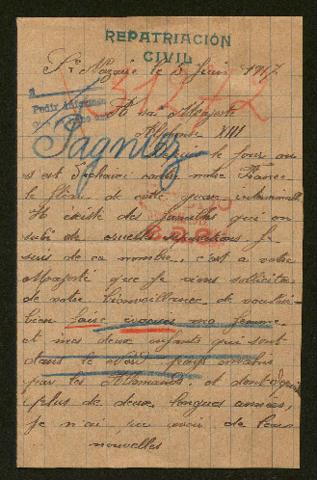 REPATRIACIÓN
CIVIL
St Nazaire le 5 Juin 1917
31272
A sa Majesté
Alphonse XIII
Pedir informes
Pagniez
le jour ou
s est déchainé sur notre France
le fléau de cette guerre
Il existe des familles qui on
subi de cruelles séparations je
suis de ce nombre, c'est a votre
Majesté que je viens solliciter
de votre bienveillance de vouloir
bien faire évacuer ma femme
et mes deux enfants qui sont
dans le Nord pays envahis
par les Allemands, et dont depuis
plus de deux longues années,
je n'ai pu avoir de leurs
nouvelles